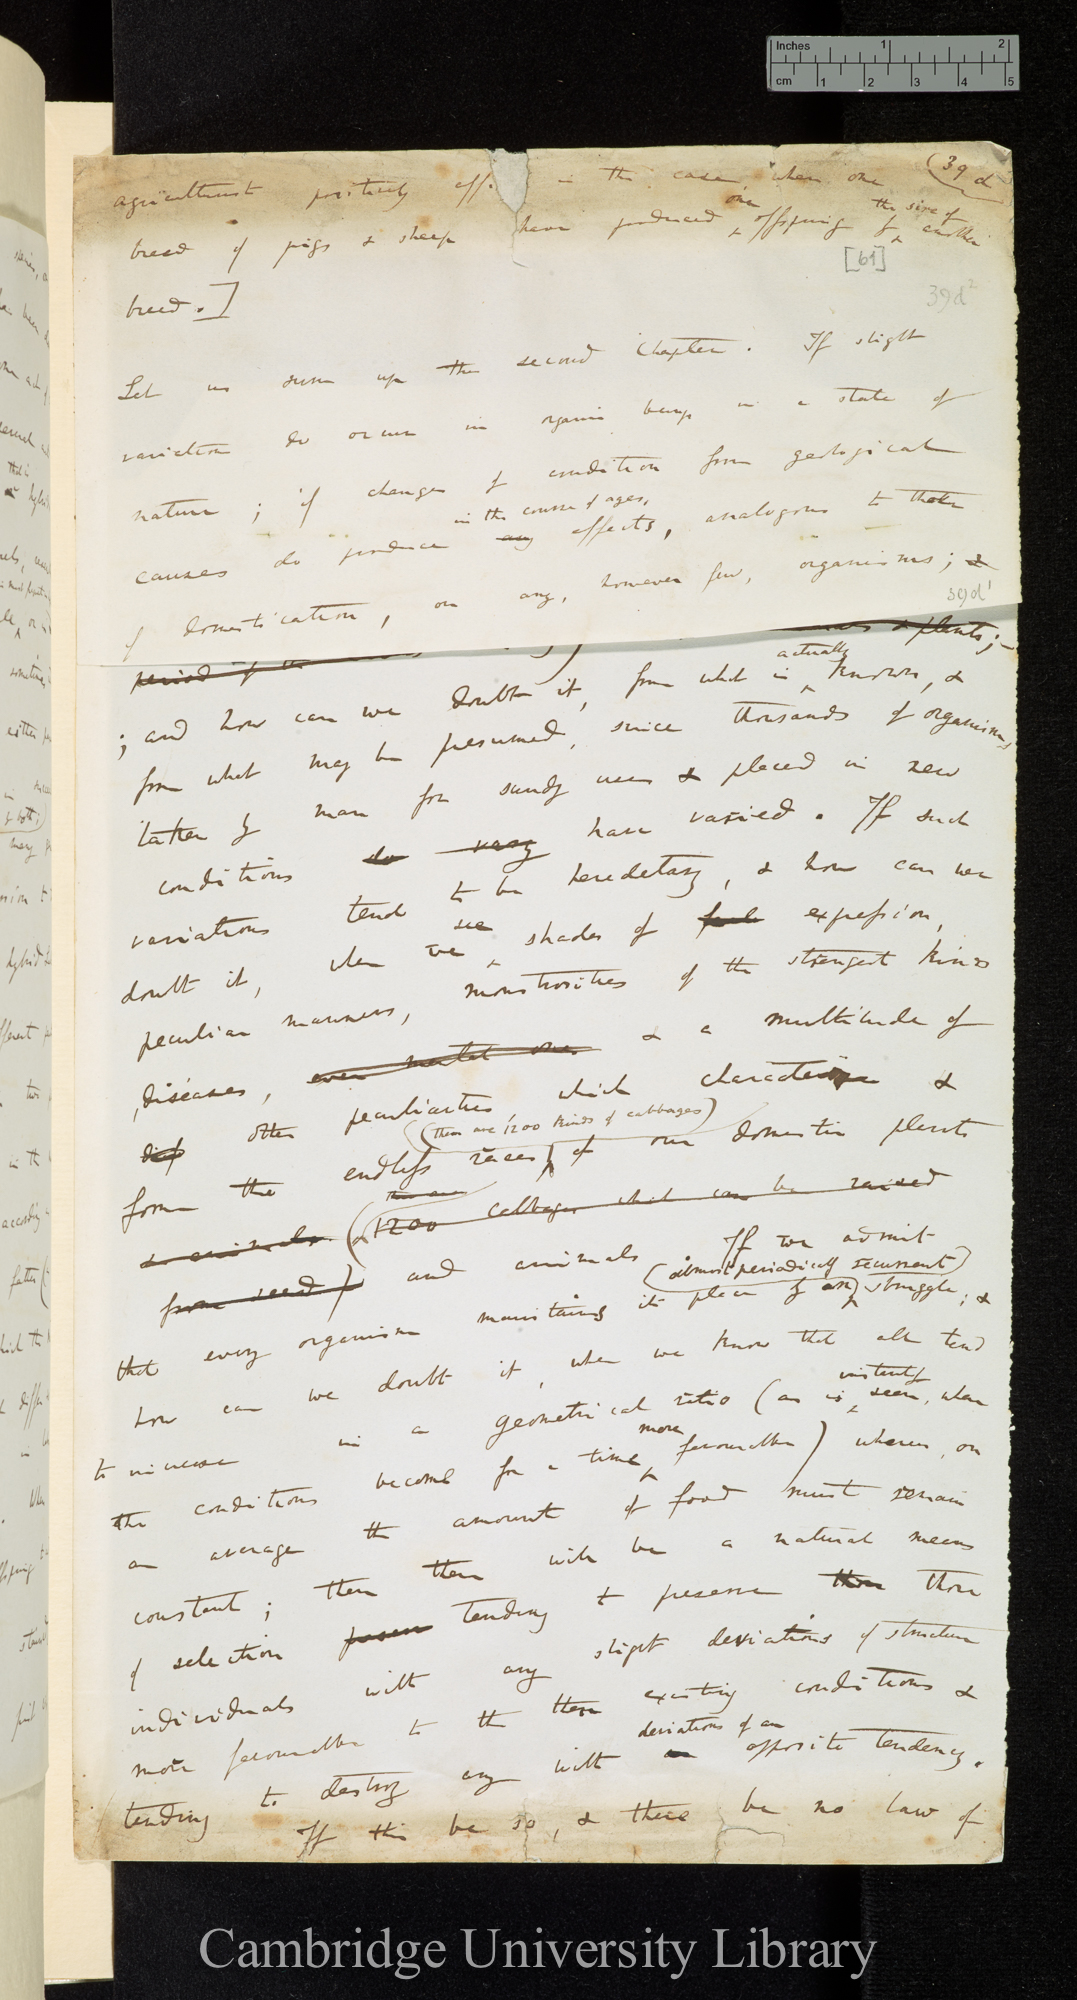 Inches 1 2
cm 1 2 3 4 5
(39 d
agriculturist positively in the case, when one
breed of pigs & sheep have produced one offspring by the sire of another
[61]
breed.]
39d²
Let us sum up this second Chapter. If slight
variation do occur in organic beings in a state of
nature; if changes of condition from geological
causes do produce in the course of ages, any effects, analogous to those
of domestication, on any, however few, organisms; &
39d¹
period of the & plants;—
; and how can we doubt it, from what is actually known, &
from what may be presumed, since thousands of organisms
taken by man for sundry uses & placed in new
conditions do vary have varied. If such
variations tend to be hereditary, & how can we
doubt it, when we see shades of expression,
peculiar manners, monstrosities of the strangest kinds
diseases, even mental ones & a multitude of
other peculiarities which characterise &
(there are 1200 kinds of cabbages)
form the endless races of our domestic plants
there are
& animals (& 1200 cabbages which can be raised
from seed) and animals If we admit
that every organism maintains its place by an (almost periodically recurrent) struggle; &
how can we doubt it, when we know that all tend
to increase in a geometrical ratio (as is instantly seen, when
the conditions become for a time more favourable) whereas, on
an average the amount of food must remain
constant; then there will be a natural means
of selection tending to preserve those those
individuals with any slight deviations of structure
more favourable to the then existing conditions &
tending to destroy any with deviations of an opposite tendency.
If this be so, & there be no law of
Cambridge University Library